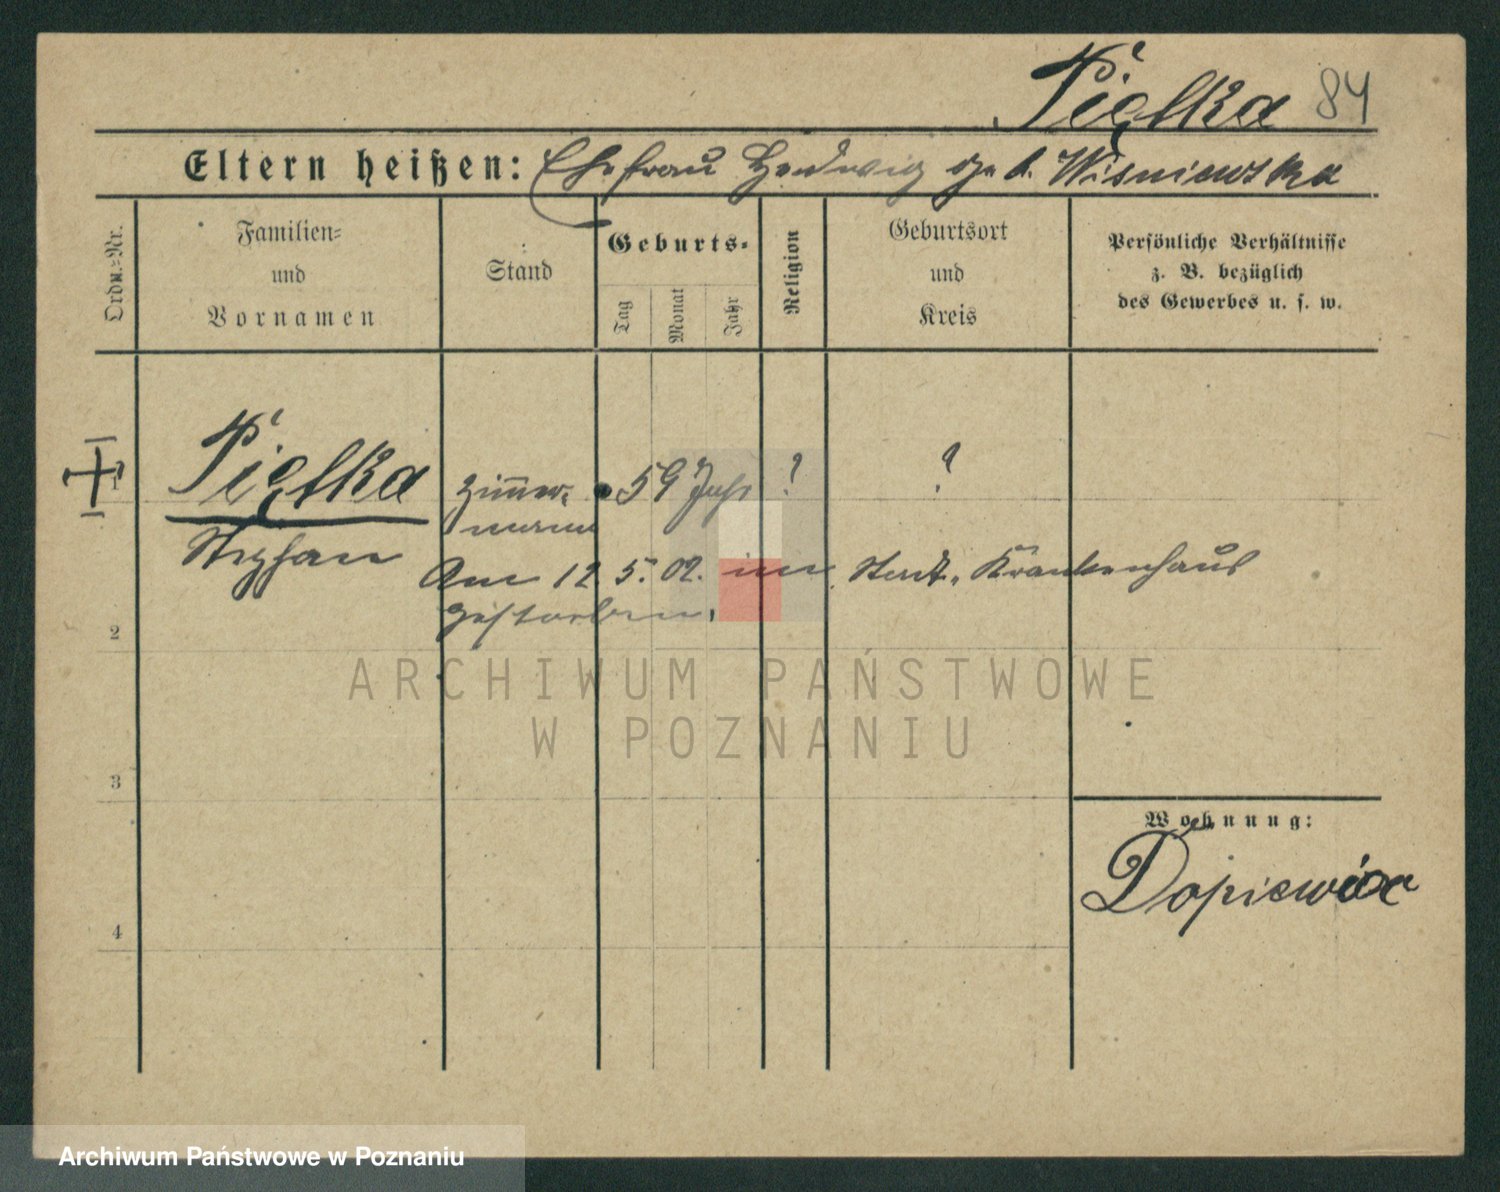 Piętka 84
Eltern heißen: Ehefrau Hedwig geb. Wisniewska
Ordn.=Nr.
Familien=
und
Vornamen
Stand
Geburts=
Tag
Monat
Jahr
Religion
Geburtsort
und
Kreis
Persönliche Verhältnisse
z. B. bezüglich
des Gewerbes u. s. w.
1
Piętka Zimmer- 59 Jahr ? ?
mann
Stephan
Am 12 5. 02. im Stadt. Krankenhaus
gestorben.
2
ARCHIWUM PAŃSTWOWE
W POZNANIU
3
Wohnung:
Dopiewiec
4
Archiwum Państwowe w Poznaniu